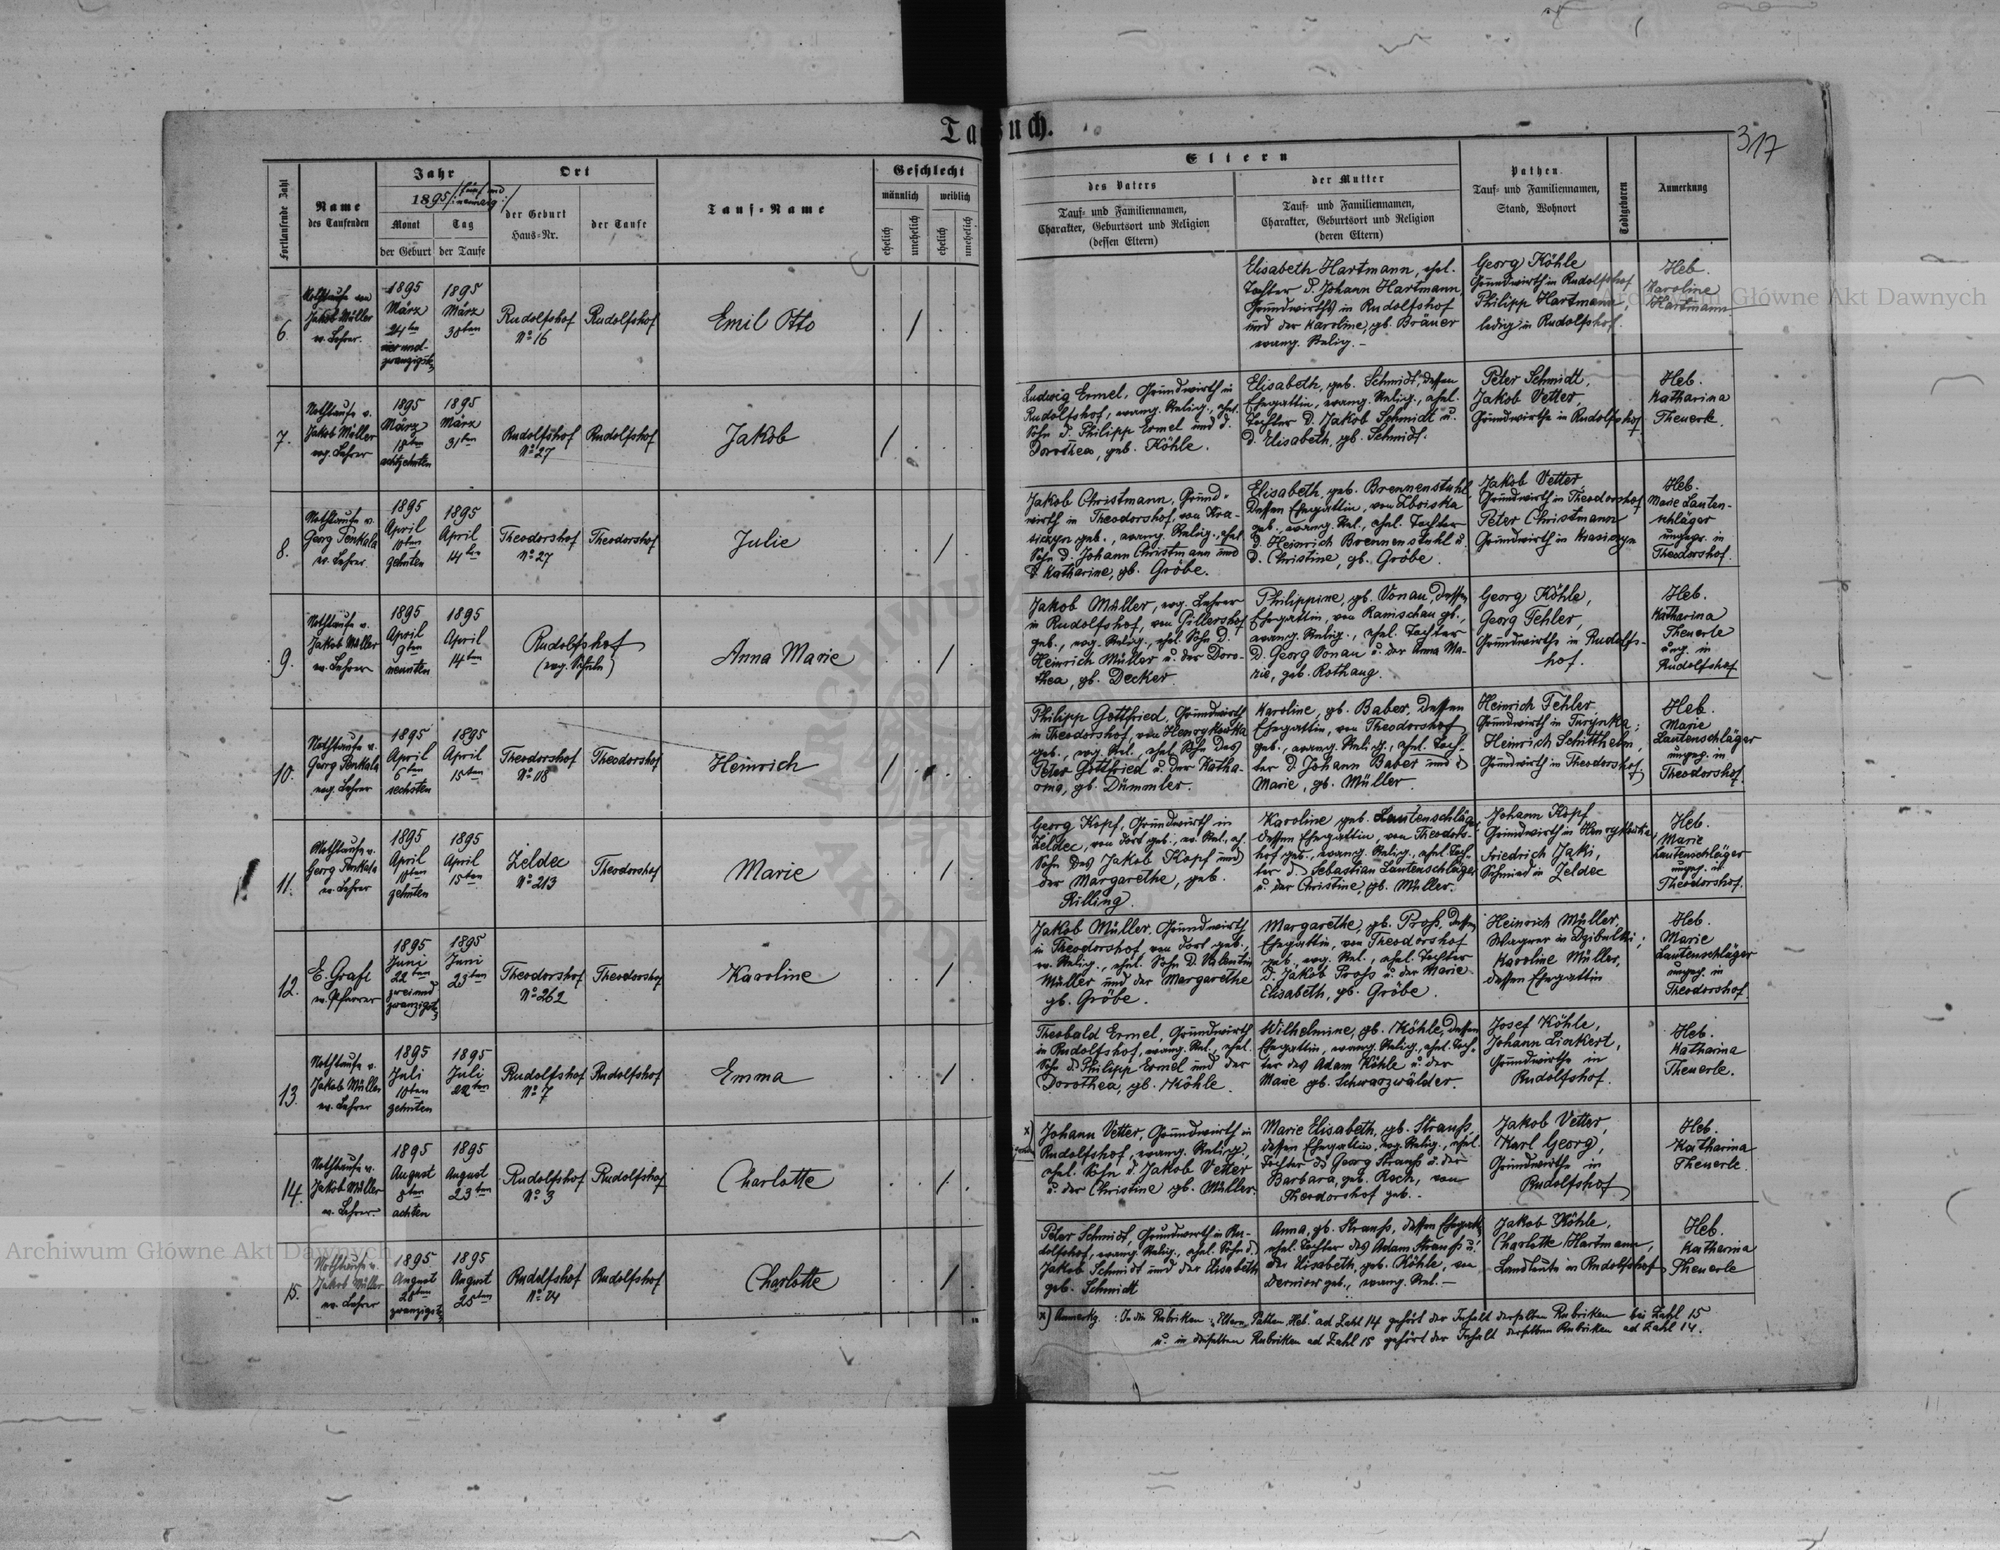 Taufbuch.
317
Fortlaufende Zahl
Name
des Taufenden
Jahr
1895
Monat
der Geburt
Tag
der Taufe
Ort
der Geburt
Haus-Nr.
der Taufe
Tauf-Name
Geschlecht
männlich
weiblich
ehelich
unehelich
ehelich
unehelich
Eltern
des Vaters
Tauf- und Familiennamen,
Charakter, Geburtsort und Religion
(dessen Eltern)
der Mutter
Tauf- und Familiennamen,
Charakter, Geburtsort und Religion
(deren Eltern)
Pathen
Tauf- und Familiennamen,
Stand, Wohnort
Todtgeboren
Anmerkung
6.
Nothtaufe von
Jakob Müller
ev. Lehrer.
1895
März
24ten
vier und
zwanzigst.
1895
März
30ten
Rudolfshof
No 16
Rudolfshof
Emil Otto
Elisabeth Hartmann, ehel.
Tochter d. Johann Hartmann,
Grundwirths in Rudolfshof
und der Karoline, gb. Bräuer
evang. Relig. –
Georg Köhle
Grundwirth in Rudolfshof
Philipp Hartmann,
ledig in Rudolfshof.
Heb.
Karoline
Hartmann
7.
Nothtaufe v.
Jakob Müller
evg. Lehrer
1895
März
18ten
achtzehnten
1895
März
31ten
Rudolfshof
No 27
Rudolfshof
Jakob
Ludwig Ermel, Grundwirth in
Rudolfshof, evang. Relig., ehel.
Sohn d. Philipp Ermel und d.
Dorothea, geb. Köhle.
Elisabeth, geb. Schmidt, dessen
Ehegattin, evang. Relig., ehel.
Tochter d. Jakob Schmidt u.
d. Elisabeth, gb. Schmidt.
Peter Schmidt,
Jakob Vetter,
Grundwirthe in Rudolfshof
Heb.
Katharina
Theuerle.
8.
Nothtaufe v.
Georg Penkala
ev. Lehrer.
1895
April
10ten
zehnten
1895
April
14ten
Theodorshof
No 27
Theodorshof
Julie
Jakob Christmann, Grund-
wirth in Theodorshof, von Kra-
siczyn geb., evang. Relig. ehel.
Sohn d. Johann Christmann und
d. Katharine, gb. Gröbe.
Elisabeth, geb. Brennenstuhl,
dessen Ehegattin, von
geb., evang. Rel., ehel. Tochter
d. Heinrich Brennenstuhl u.
d. Christine, gb. Gröbe.
Jakob Vetter,
Grundwirth in Theodorshof
Peter Christmann
Grundwirth in Krasiczyn
Heb.
Marie Lauten-
schläger
ungepr. in
Theodorshof.
9.
Nothtaufe v.
Jakob Müller
ev. Lehrer
1895
April
9ten
neunten
1895
April
14ten
Rudolfshof
(evg. Schule)
Anna Marie
Jakob Müller, evg. Lehrer
in Rudolfshof, von Gillershof
geb., evg. Relig., ehel. Sohn d.
Heinrich Müller u. der Doro-
thea, gb. Decker.
Philippine, gb. Vonau, dessen
Ehegattin, von Ranischau gb.,
evang. Relig., ehel. Tochter
d. Georg Vonau u. der Anna Ma-
rie, geb. Rothaug.
Georg Köhle,
Georg Fehler,
Grundwirthe in Rudolfs-
hof.
Heb.
Katharina
Theuerle
ung. in
Rudolfshof
10.
Nothtaufe v.
Georg Penkala
evg. Lehrer
1895
April
6ten
sechsten
1895
April
15ten
Theodorshof
No 118
Theodorshof
Heinrich
Philipp Gottfried, Grundwirth
in Theodorshof, von Henrykowka
geb., evg. Rel., ehel. Sohn des
Peter Gottfried u. der Katha-
rina, gb. Dümmler.
Karoline, gb. Baber, dessen
Ehegattin, von Theodorshof
geb., evang. Relig., ehel. Toch-
ter d. Johann Baber und d.
Marie, gb. Müller.
Heinrich Fehler
Grundwirth in Turynka;
Heinrich Schütthelm,
Grundwirth in Theodorshof
Heb.
Marie
Lautenschläger
ungep. in
Theodorshof.
11.
Nothtaufe v.
Georg Penkala
ev. Lehrer
1895
April
10ten
zehnten
1895
April
15ten
Zeldec
No 213
Theodorshof
Marie
Georg Kopf, Grundwirth in
Zeldec, von dort geb., ev. Rel., eh.
Sohn des Jakob Kopf und
der Margarethe, geb.
Rilling.
Karoline geb. Lautenschläger
dessen Ehegattin, von Theodors-
hof geb., evang. Relig., ehel. Toch-
ter d. Sebastian Lautenschläger
u. der Christine, gb. Müller.
Johann Kopf
Grundwirth in Henrykowka,
Friedrich Jaki,
Schmied in Zeldec
Heb.
Marie
Lautenschläger
ungep. in
Theodorshof.
12.
E. Grafl
ev. Pfarrer
1895
Juni
22ten
zwei und
zwanzigst.
1895
Juni
23ten
Theodorshof
No 262
Theodorshof
Karoline
Jakob Müller, Grundwirth
in Theodorshof, von dort geb.,
ev. Relig., ehel. Sohn d. Valentin
Müller und der Margarethe
gb. Gröbe.
Margarethe, gb. Proß, dessen
Ehegattin, von Theodorshof
geb., evg. Rel., ehel. Tochter
d. Jakob Proß u. der Marie
Elisabeth, gb. Gröbe.
Heinrich Müller
Wagner in Dzibulki;
Karoline Müller,
dessen Ehegattin
Heb.
Marie
Lautenschläger
ungep. in
Theodorshof.
13.
Nothtaufe v.
Jakob Müller
ev. Lehrer
1895
Juli
10ten
zehnten
1895
Juli
22ten
Rudolfshof
No 7
Rudolfshof
Emma
Theobald Ermel, Grundwirth
in Rudolfshof, evang. Rel., ehel.
Sohn ds Philipp Ermel und der
Dorothea, gb. Köhle.
Wilhelmine, gb. Köhle, dessen
Ehegattin, evang. Relig., ehel. Toch-
ter des Adam Köhle u. der
Marie gb. Schwarzwälder.
Josef Köhle,
Johann Linkert,
Grundwirthe in
Rudolfshof.
Heb.
Katharina
Theuerle.
14.
Nothtaufe v.
Jakob Müller
ev. Lehrer.
1895
August
8ten
achten
1895
August
23ten
Rudolfshof
No 3
Rudolfshof
Charlotte
x)
Johann Vetter, Grundwirth in
Rudolfshof, evang. Relig.,
ehel. Sohn d. Jakob Vetter
u. der Christine gb. Müller.
Marie Elisabeth, gb. Strauß,
dessen Ehegattin, evg. Relig., ehel.
Tochter ds Georg Strauß u. der
Barbara, geb. Koch, von
Theodorshof geb. –
Jakob Vetter,
Karl Georg,
Grundwirthe in
Rudolfshof
Heb.
Katharina
Theuerle.
15.
Nothtaufe v.
Jakob Müller
ev. Lehrer
1895
August
20ten
zwanzigst.
1895
August
25ten
Rudolfshof
No 24
Rudolfshof
Charlotte
Peter Schmidt, Grundwirth in Ru-
dolfshof, evang. Relig., ehel. Sohn d.
Jakob Schmidt und der Elisabeth
geb. Schmidt
Anna, gb. Strauß, dessen Ehegatt.,
ehel. Tochter des Adam Strauß u.
der Elisabeth, geb. Köhle, von
Derniow geb., evang. Rel. –
Jakob Köhle,
Charlotte Hartmann,
Landleute in Rudolfshof
Heb.
Katharina
Theuerle
x) Anmerkg. : In die Rubriken : Eltern, Pathen, Heb. ad Zahl 14 gehört der Inhalt derselben Rubriken bei Zahl 15
u. in dieselben Rubriken ad Zahl 15 gehört der Inhalt derselben Rubriken ad Zahl 14.
Archiwum Główne Akt Dawnych
Archiwum Główne Akt Dawnych